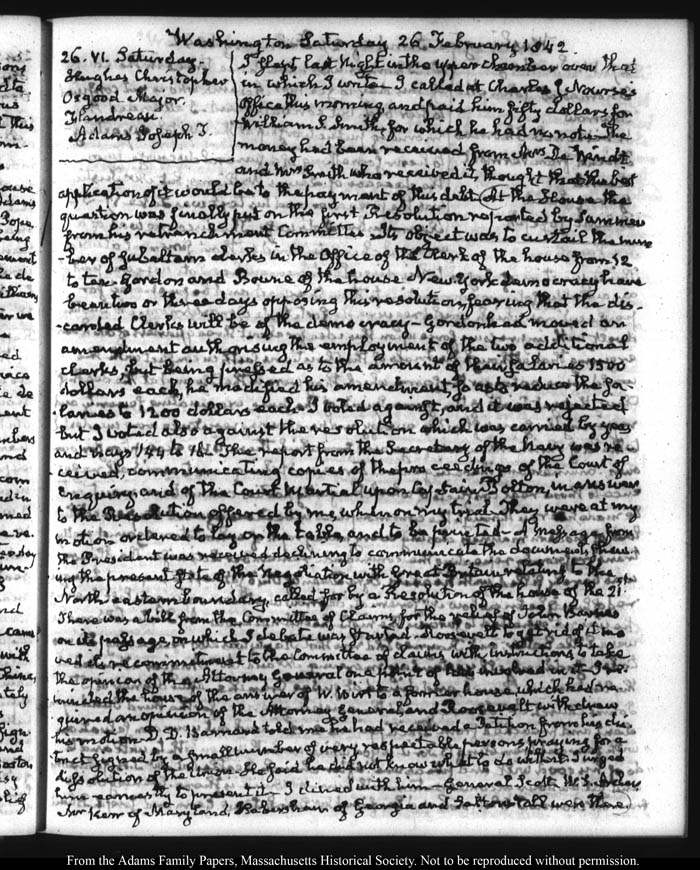 Washington Saturday 26. February 1842.
26. VI. Saturday.
Hughes Christopher
Osgood Major.
Flandreau.
Adams Joseph T.
I slept last Night in the upper chamber over that
in which I write. I called at Charles J. Nourse's
Office this morning and paid him fifty dollars for
William S. Smith, for which he had his note. The
money had been received from Mrs De Windt
and Mrs Smith who received it, thought that the best
application of it would be to the payment of this debt. At the House the
question was finally put on the first Resolution reported by Summers
from his retrenchment Committee. Its object was to curtail the num
-ber of subaltern clerks in the Office of the Clerk of the house from 12
to ten. Gordon and Bowne of the house New York democracy have
been two or three days opposing this resolution, fearing that the dis-
-carded Clerks will be of the democracy - Gordon had moved an
amendment authorising the employment of the two additional
clerks, but being pressed as to the amount of their salaries 1500
dollars each, he modified his amendment so as to reduce the sa-
-laries to 1200 dollars each. I voted against, and it was rejected
but I voted also against the resolution which was carried by yeas
and nays 144 to The report from the Secretary of the Navy was re-
ceived, communicating copies of the proceedings of the Court of
Enquiry, and of the Court Martial upon Captain Bolton, in answer
to the Resolution offered by me, when on my trial. They were at my
motion ordered to lay on the table, and to be printed - A Message from
the President was received declining to communicate the documents shew-
ing the present state of the Negotiation with Great Britain relating to the
North eastern boundary, called for by a Resolution of the house of the 21st
There was a bill from the Committee of Claims, for the relief of John
on its passage, on which a debate was started. Roosevelt to get rid of it mo
ved its recommitment to the Committee of claims with Instructions to take
the opinion of the Attorney General on a point of law involved in it. I re-
minded the house of the answer of W. Wirt to a former house, which had re-
quired an opinion of the Attorney General, and Roosevelt withdrew
his motion. D. D. Barnard told me he had received a Petition from his dis-
trict, signed by a small number of very respectable persons praying for a
dissolution of the Union. He said he did not know what to do with it. I urged
him earnestly to present it - I dined with him - General Scott, W. S. Archer
Mr Kerr of Maryland, Habersham of Georgia and were there.
From the Adams Family Papers, Massachusetts Historical Society. Not to be reproduced without permission.